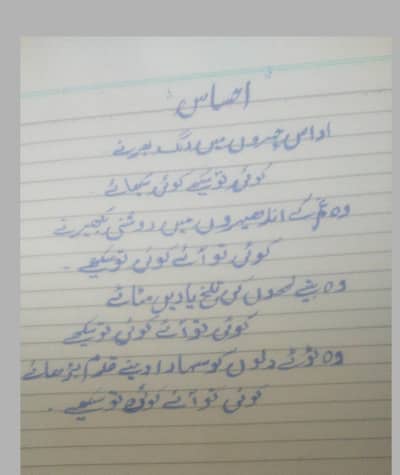 احساس
اداس چہروں میں رنگ بھرنے
کوئی تو سیکھے کوئی سکھائے
وہ غم کے اندھیروں میں روشنی بکھیرنے
کوئی تو آئے کوئی تو سیکھے۔
وہ بیتے لمحوں کی تلخ یادیں مٹانے
کوئی تو آئے کوئی تو سیکھے
وہ ٹوٹے دلوں کو سہارا دینے قدم بڑھائے
کوئی تو آئے کوئی تو سیکھے۔